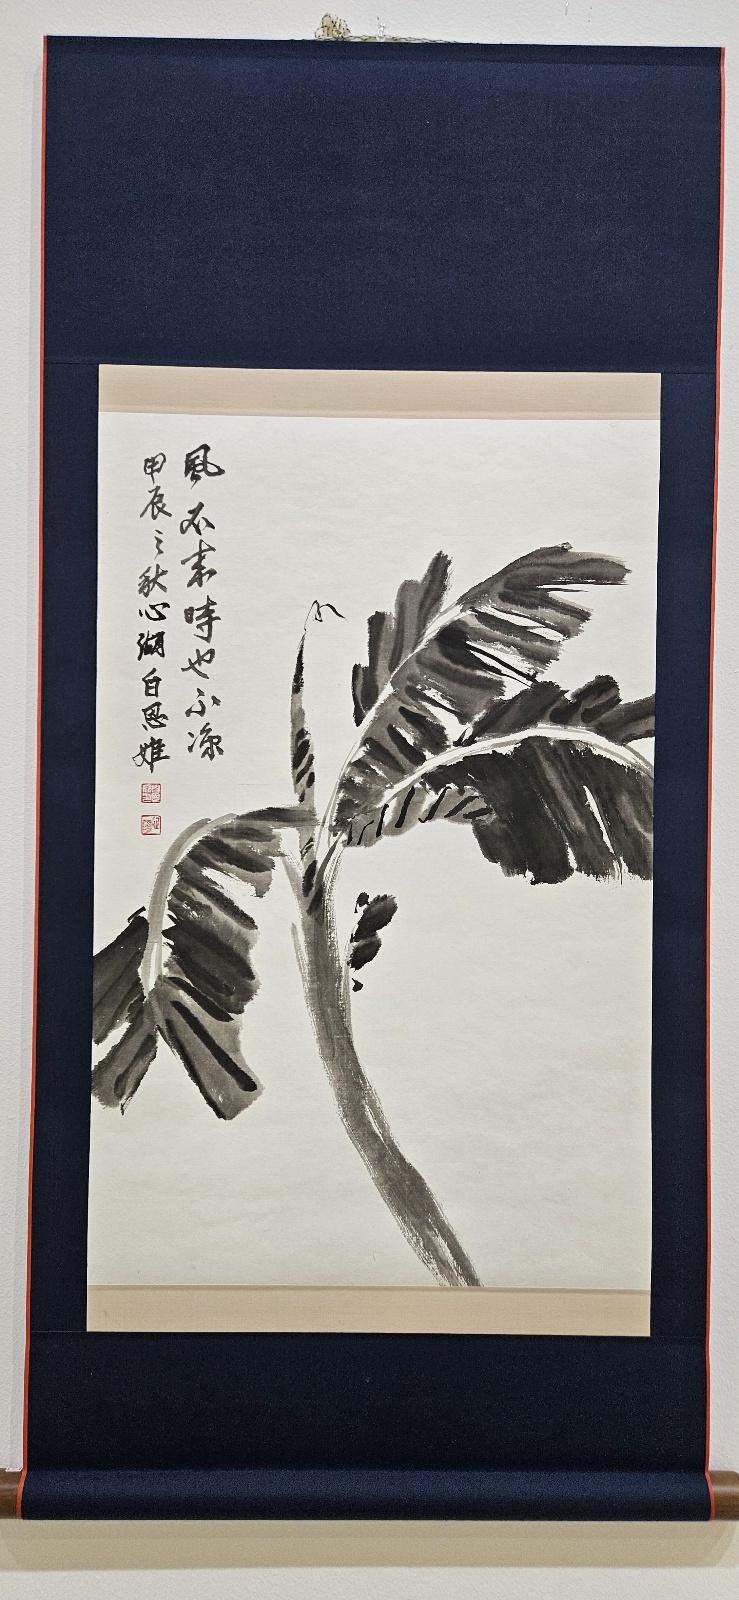 風不来時也不涼
甲辰之秋心湖白恩姫